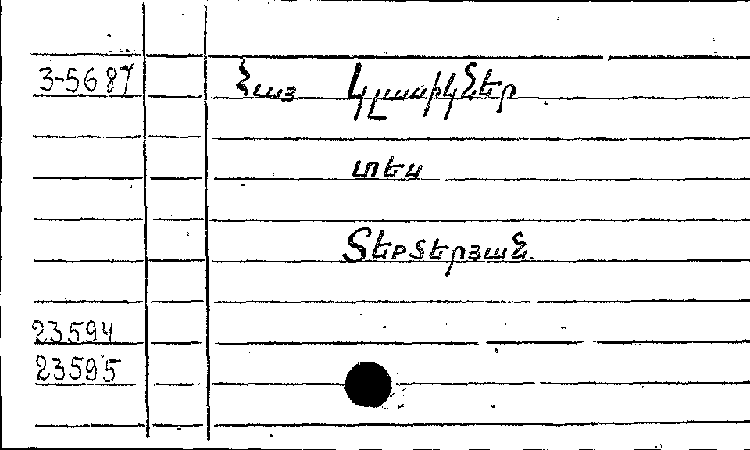 3-5687 Հայ Կլասիկներ
տես
Տեր-Տերյան
23594
23595